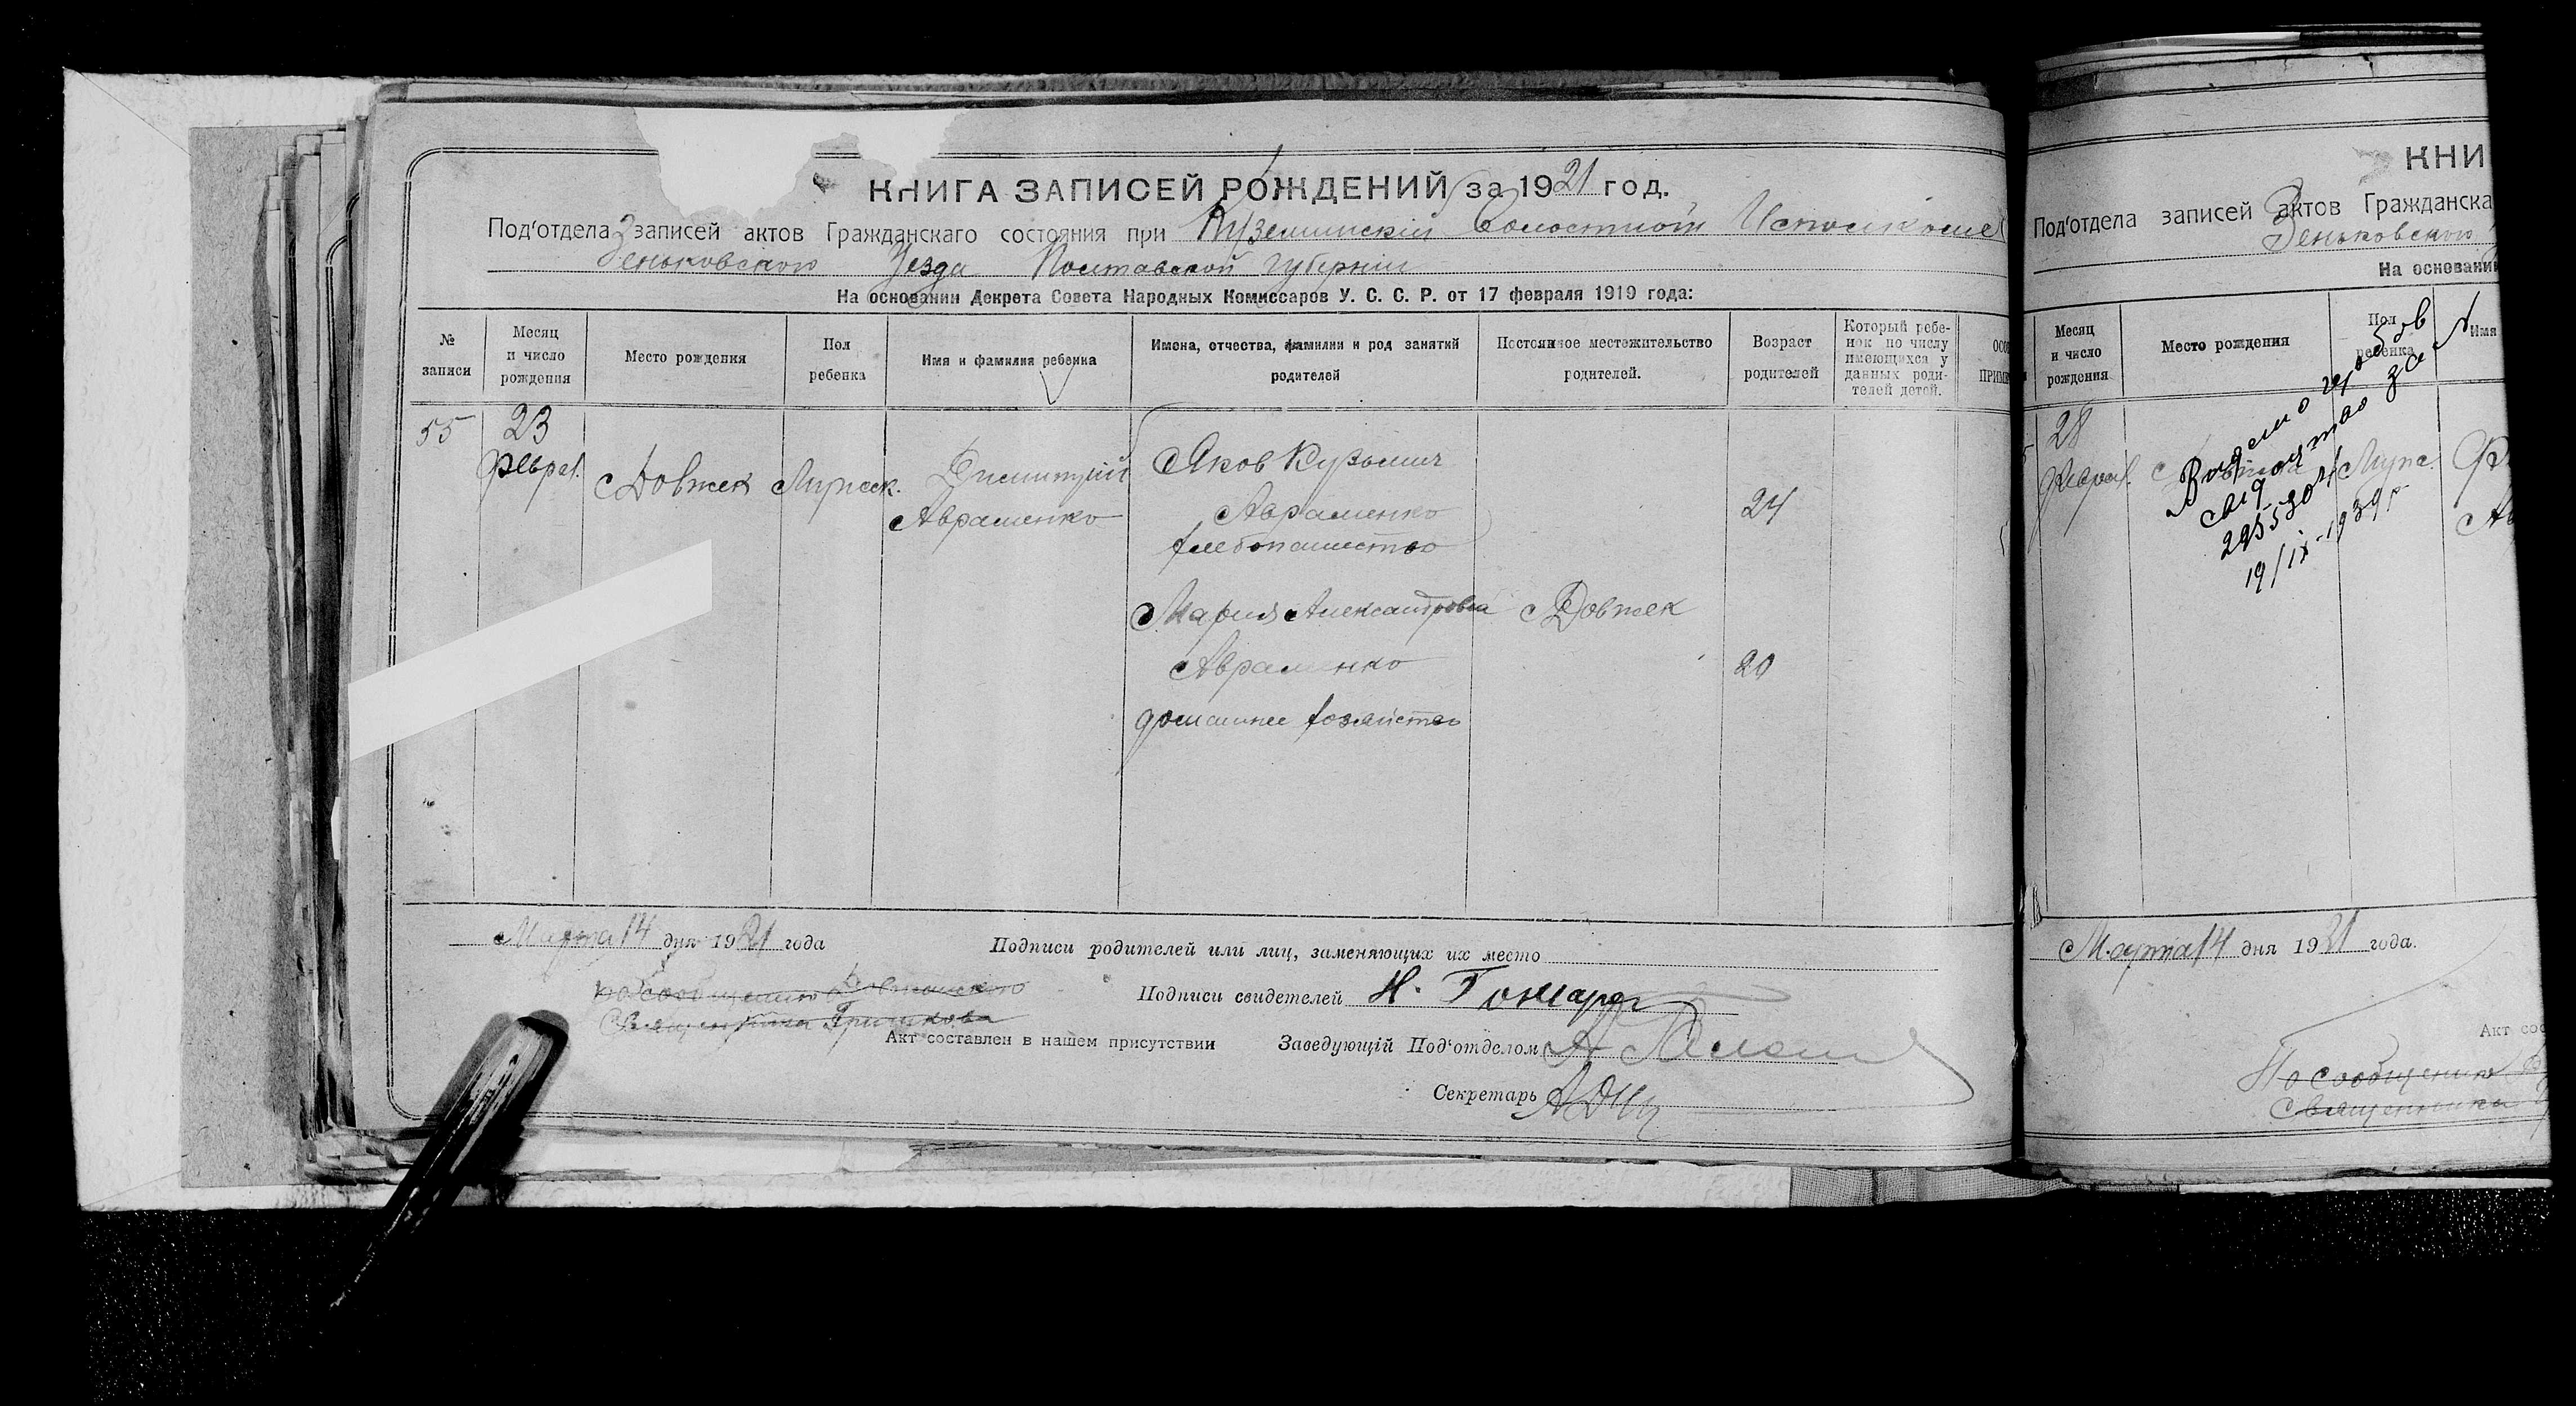 КНИГА ЗАПИСЕЙ РОЖДЕНИЙ за 1921 год.
Под'отдела записей актов Гражданскаго состояния при Куземинский Волостной Исполком
Зеньковского Уезда Полтавской Губернии
На основании Декрета Совета Народных Комиссаров У. С. С. Р. от 17 февраля 1919 года:
№ записи
Месяц и число рождения
Место рождения
Пол ребенка
Имя и фамилия ребенка
Имена, отчества, фамилии и род занятий родителей
Постоянное местежительство родителей.
Возраст родителей
Который ребенок по числу имеющихся у данных родителей детей.
55
23
Феврал.
Довжек
Мужеск.
Димитрий
Авраменко
Яков Кузьмич
Авраменко
хлебопашество
24
Мария Александровна
Довжек
Авраменко
20
домашнее хозяйство
Марта 14 дня 1921 года
Подписи родителей или лиц, заменяющих их место
По сообщению Довжанского
Священника Гришкова
Подписи свидетелей Н. Гончар
Акт составлен в нашем присутствии
Заведующій Под'отделом
Секретарь
КНИ
Под'отдела записей актов Гражданска
Зеньковского
На основани
Месяц и число рождения
Место рождения
Пол ребенка
Имя
28
Феврал.
Муж.
Ав
19/IX-1939 г
Марта 14 дня 1921 года.
Акт сос
По сообщению
Священника